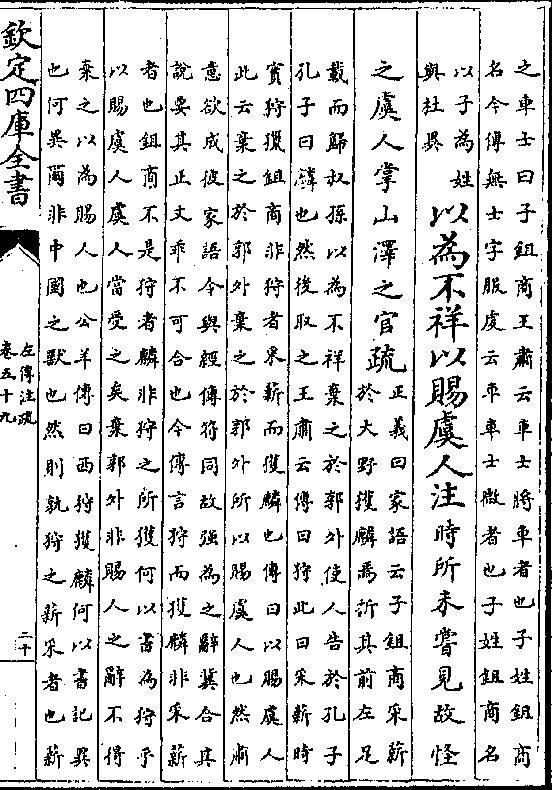 之車士曰子鉏商王肅云車士將車者也子姓鉏商
名今傳無士字服虔云車車士微者也子姓鉏商名
以子為姓
與杜異
以為不祥以賜虞人注時所未嘗見故怪
之虞人掌山澤之官疏
正義曰家語云子鉏商采薪
於大野獲麟焉折其前左足
載而歸叔孫以為不祥棄之於郭外使人告於孔子
孔子曰麟也然後取之王肅云傳曰狩此曰采薪時
實狩獵鉏商非狩者采薪而獲麟也傳曰以賜虞人
此云棄之於郭外棄之於郭外所以賜虞人也然肅
意欲成彼家語令與經傳符同故强為之辭冀合其
說要其正文乖不可合也今傳言狩而獲麟非采薪
者也鉏商不是狩者麟非狩之所獲何以書為狩乎
以賜虞人虞人當受之矣棄郭外非賜人之辭不得
棄之以為賜人也公羊傳曰西狩獲麟何以書記異
也何異爾非中國之獸也然則孰狩之薪采者也薪
欽定四庫全書
左傳注疏
卷五十九
二十